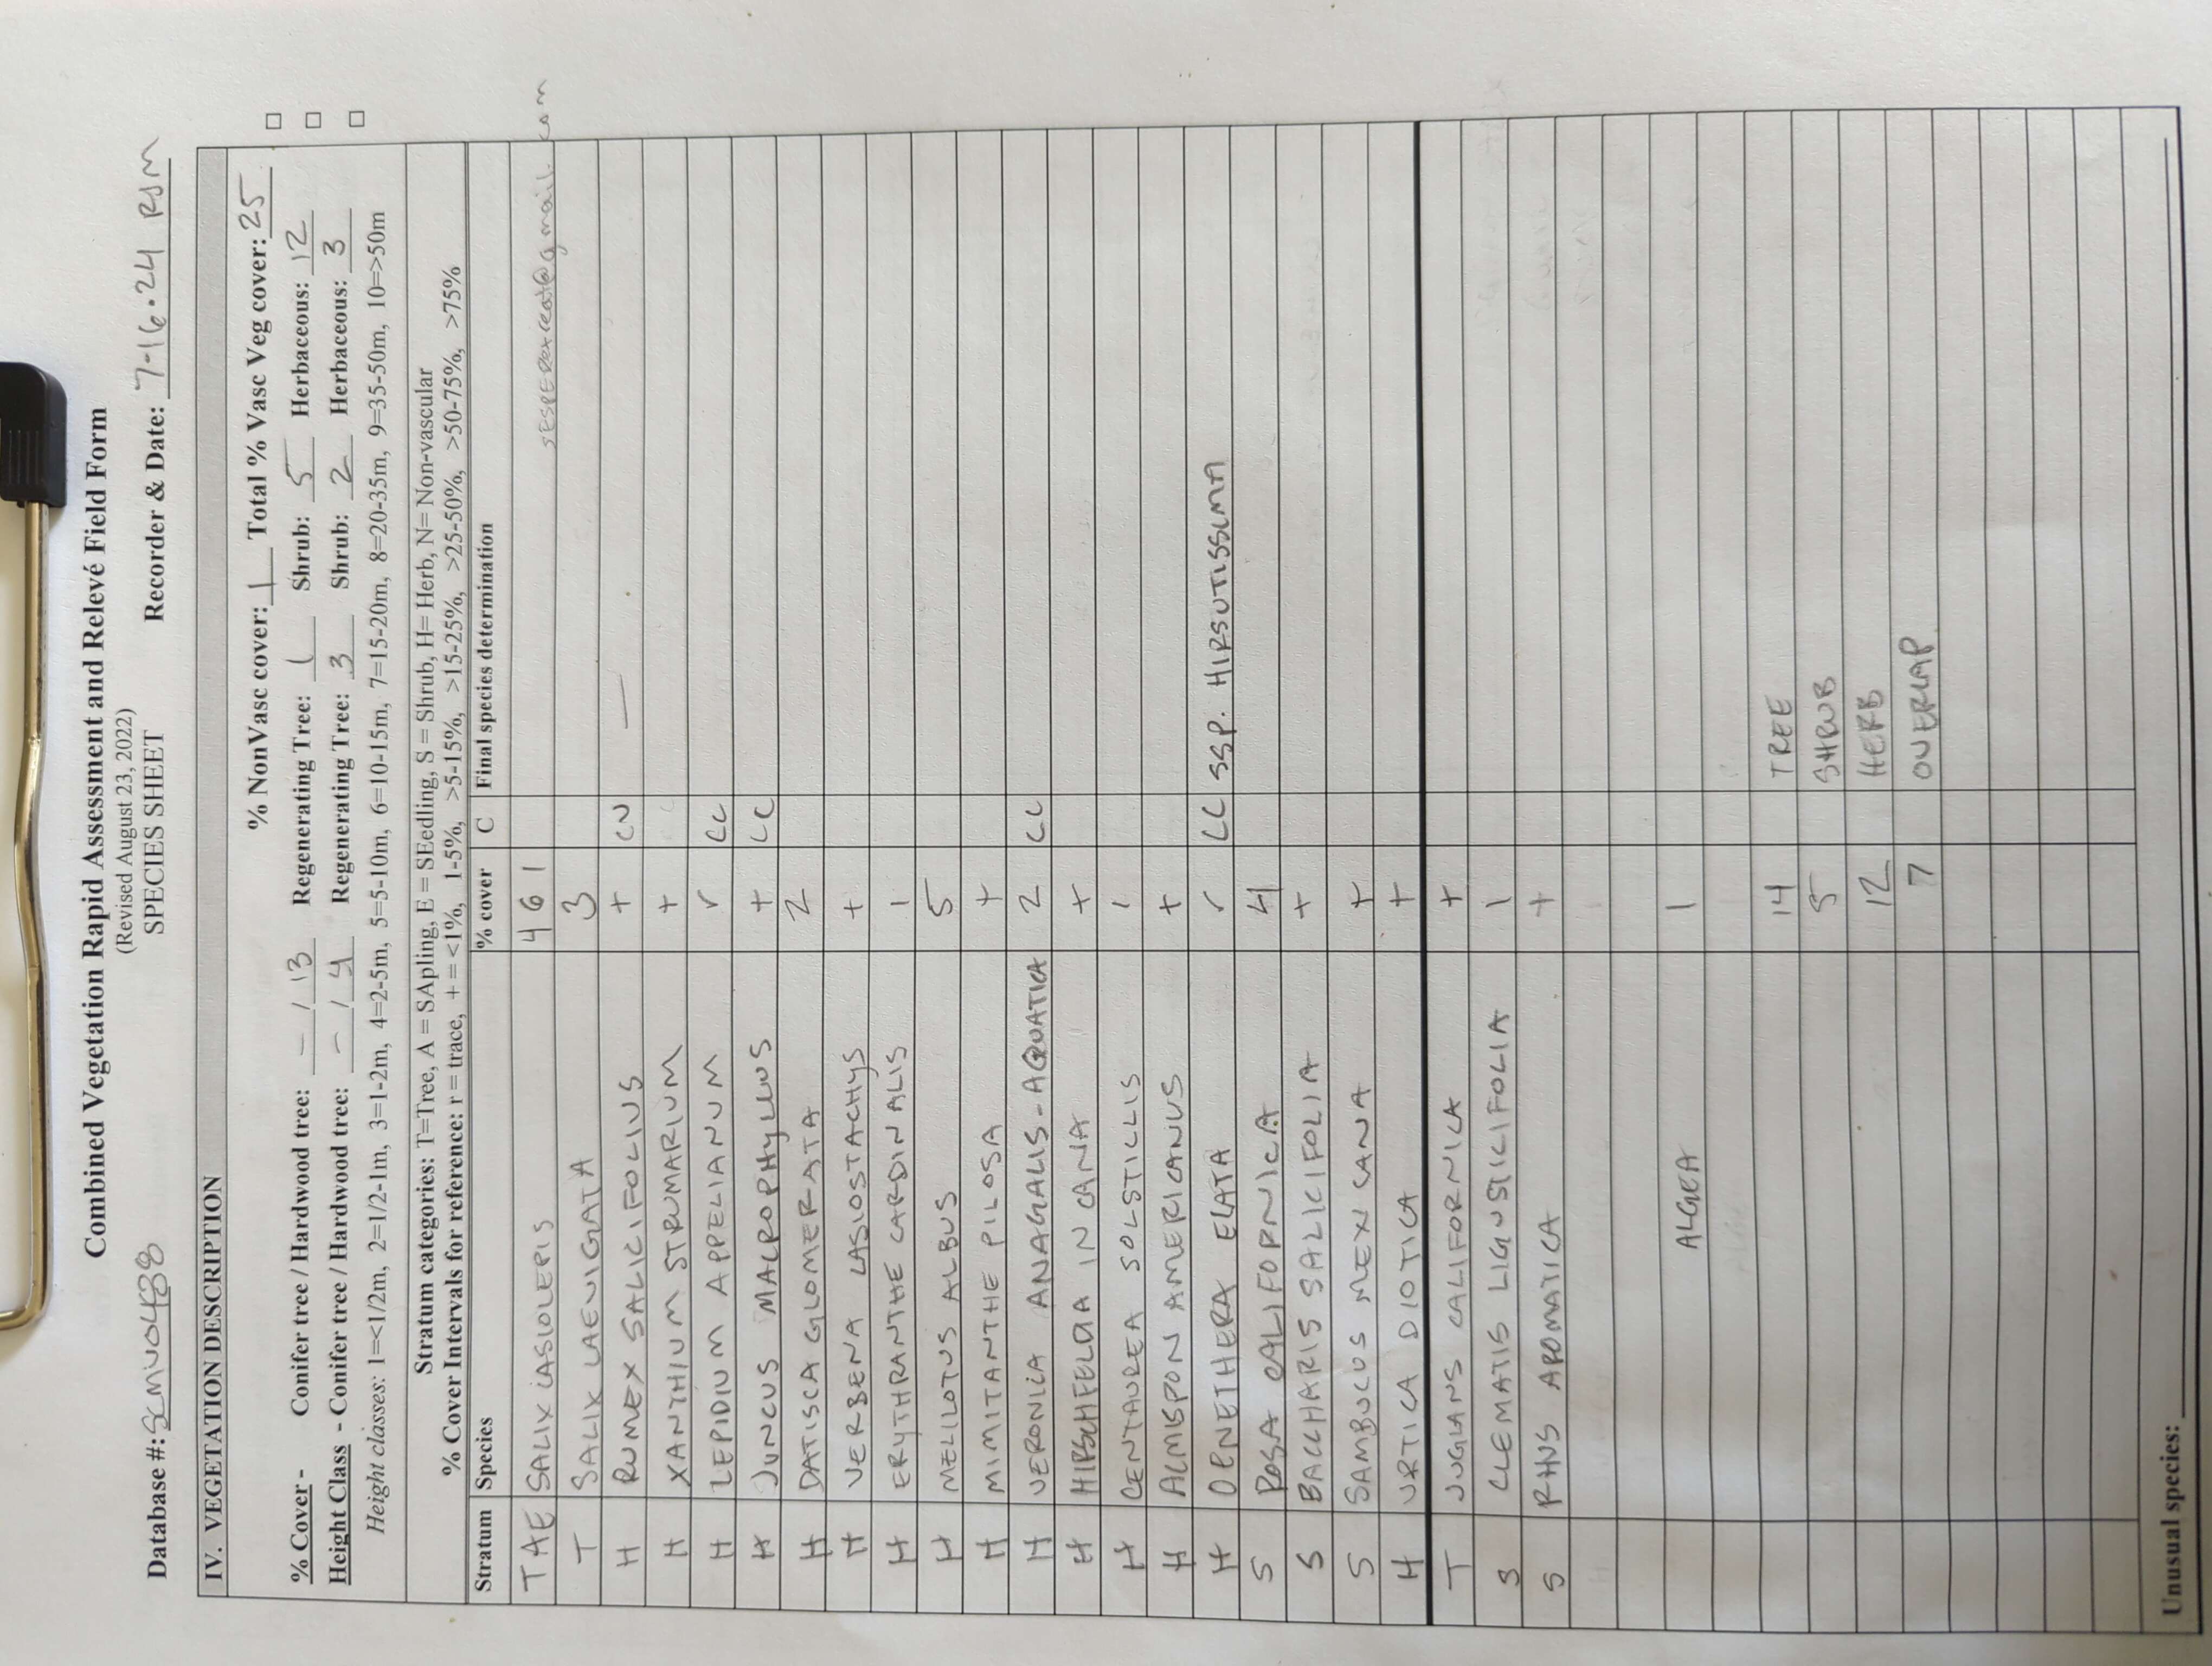 Combined Vegetation Rapid Assessment and Relevé Field Form
(Revised August 23, 2022)
SPECIES SHEET
Database #: SCMU0488 Recorder & Date: 7-16-24 RJM
IV. VEGETATION DESCRIPTION
% NonVasc cover: 1 Total % Vasc Veg cover: 25
% Cover - Conifer tree / Hardwood tree: - / 13 Regenerating Tree: 1 Shrub: 5 Herbaceous: 12
Height Class - Conifer tree / Hardwood tree: - / 4 Regenerating Tree: 3 Shrub: 2 Herbaceous: 3
Height classes: 1=<1/2m, 2=1/2-1m, 3=1-2m, 4=2-5m, 5=5-10m, 6=10-15m, 7=15-20m, 8=20-35m, 9=35-50m, 10=>50m
Stratum categories: T=Tree, A = SApling, E = SEedling, S = Shrub, H= Herb, N= Non-vascular
% Cover Intervals for reference: r = trace, + = <1%, 1-5%, >5-15%, >15-25%, >25-50%, >50-75%, >75%
Stratum Species % cover C Final species determination
TAE SALIX LASIOLEPIS 4 6 1
T SALIX LAEVIGATA 3
H RUMEX SALICIFOLIUS + CV —
H XANTHIUM STRUMARIUM +
H LEPIDIUM APPELIANUM r CC
H JUNCUS MACROPHYLLUS + LC
H DATISCA GLOMERATA 2
H VERBENA LASIOSTACHYS +
H ERYTHRANTHE CARDINALIS 1
H MELILOTUS ALBUS 5
H MIMITANTHE PILOSA +
H VERONICA ANAGALIS-AQUATICA 2 CC
H HIRSCHFELDIA INCANA +
H CENTAUREA SOLSTILLIS 1
H ACMISPON AMERICANUS +
H OENETHERA ELATA r CC SSP. HIRSUTISSIMA
S ROSA CALIFORNICA 4
S BACCHARIS SALICIFOLIA +
S SAMBUCUS MEXICANA +
H URTICA DIOTICA +
T JUGLANS CALIFORNICA +
S CLEMATIS LIGUSTICIFOLIA 1
S RHUS AROMATICA +
ALGEA 1
14 TREE
5 SHRUB
12 HERB
7 OVERLAP
Unusual species: